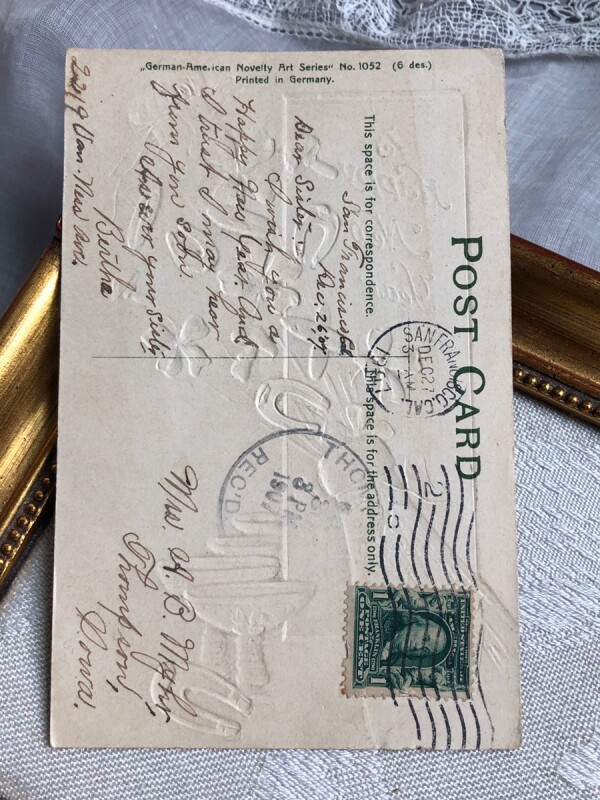 „German-American Novelty Art Series" No. 1052 (6 des.)
Printed in Germany.
POST CARD
This space is for correspondence.
This space is for the address only.
San Francisco
Dec. 26
Dear Sister:
I wish you a
Happy New Year. And
I trust I may hear
from you soon.
As ever your Sister
Bertha
Van Ness Ave.
SAN FRANCISCO
DEC 27
3 - AM
CAL.
1907
REC'D
PM
2
Mrs. A. C.
Thompson,
Iowa.
UNITED STATES
POSTAGE
ONE CENT
1 1